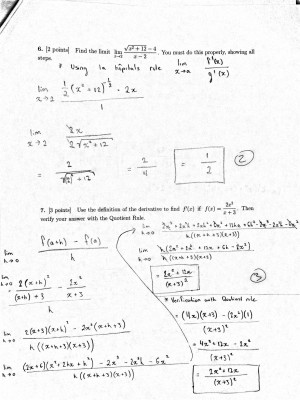 6. [2 points] Find the limit lim x→2 (√(x²+12) − 4)/(x − 2). You must do this properly, showing all
steps.
* Using la hôpitals rule lim x→a f'(x)/g'(x)
lim x→2 (½(x²+12)^(-½) · 2x)/1
lim x→2 2x/(2√(x²+12))
= 2/√(2²+12) = 2/4 = 1/2
②
7. [3 points] Use the definition of the derivative to find f'(x) if f(x) = 2x²/(x+3). Then
verify your answer with the Quotient Rule.
lim h→0 (f(a+h) − f(a))/h
lim h→0 (2(x+h)²/((x+h)+3) − 2x²/(x+3))/h
lim h→0 (2(x+3)(x+h)² − 2x²(x+h+3))/(h((x+h+3)(x+3)))
lim h→0 ((2x+6)(x²+2hx+h²) − 2x³ − 2x²h − 6x²)/(h((x+h+3)(x+3)))
= (2x²+12x)/(x+3)²
③
* Verification with Quotient rule
= ((4x)(x+3) − (2x²)(1))/(x+3)²
= (4x²+12x − 2x²)/(x+3)²
= (2x²+12x)/(x+3)²